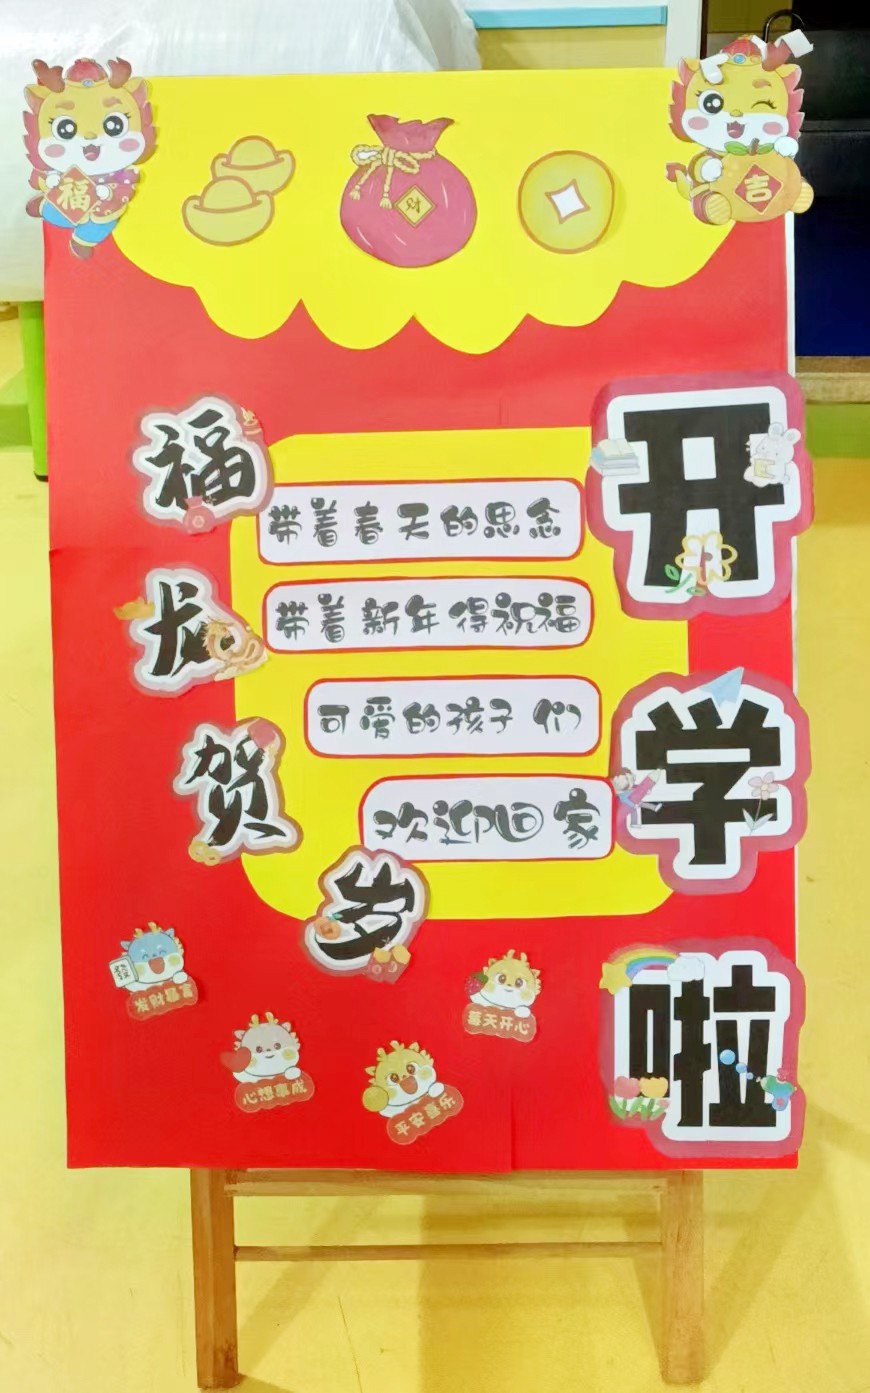 福
吉
开学啦
带着春天的思念
带着新年得祝福
可爱的孩子们
欢迎回家
福龙贺岁
發
发财暴富
心想事成
平安喜乐
莓天开心